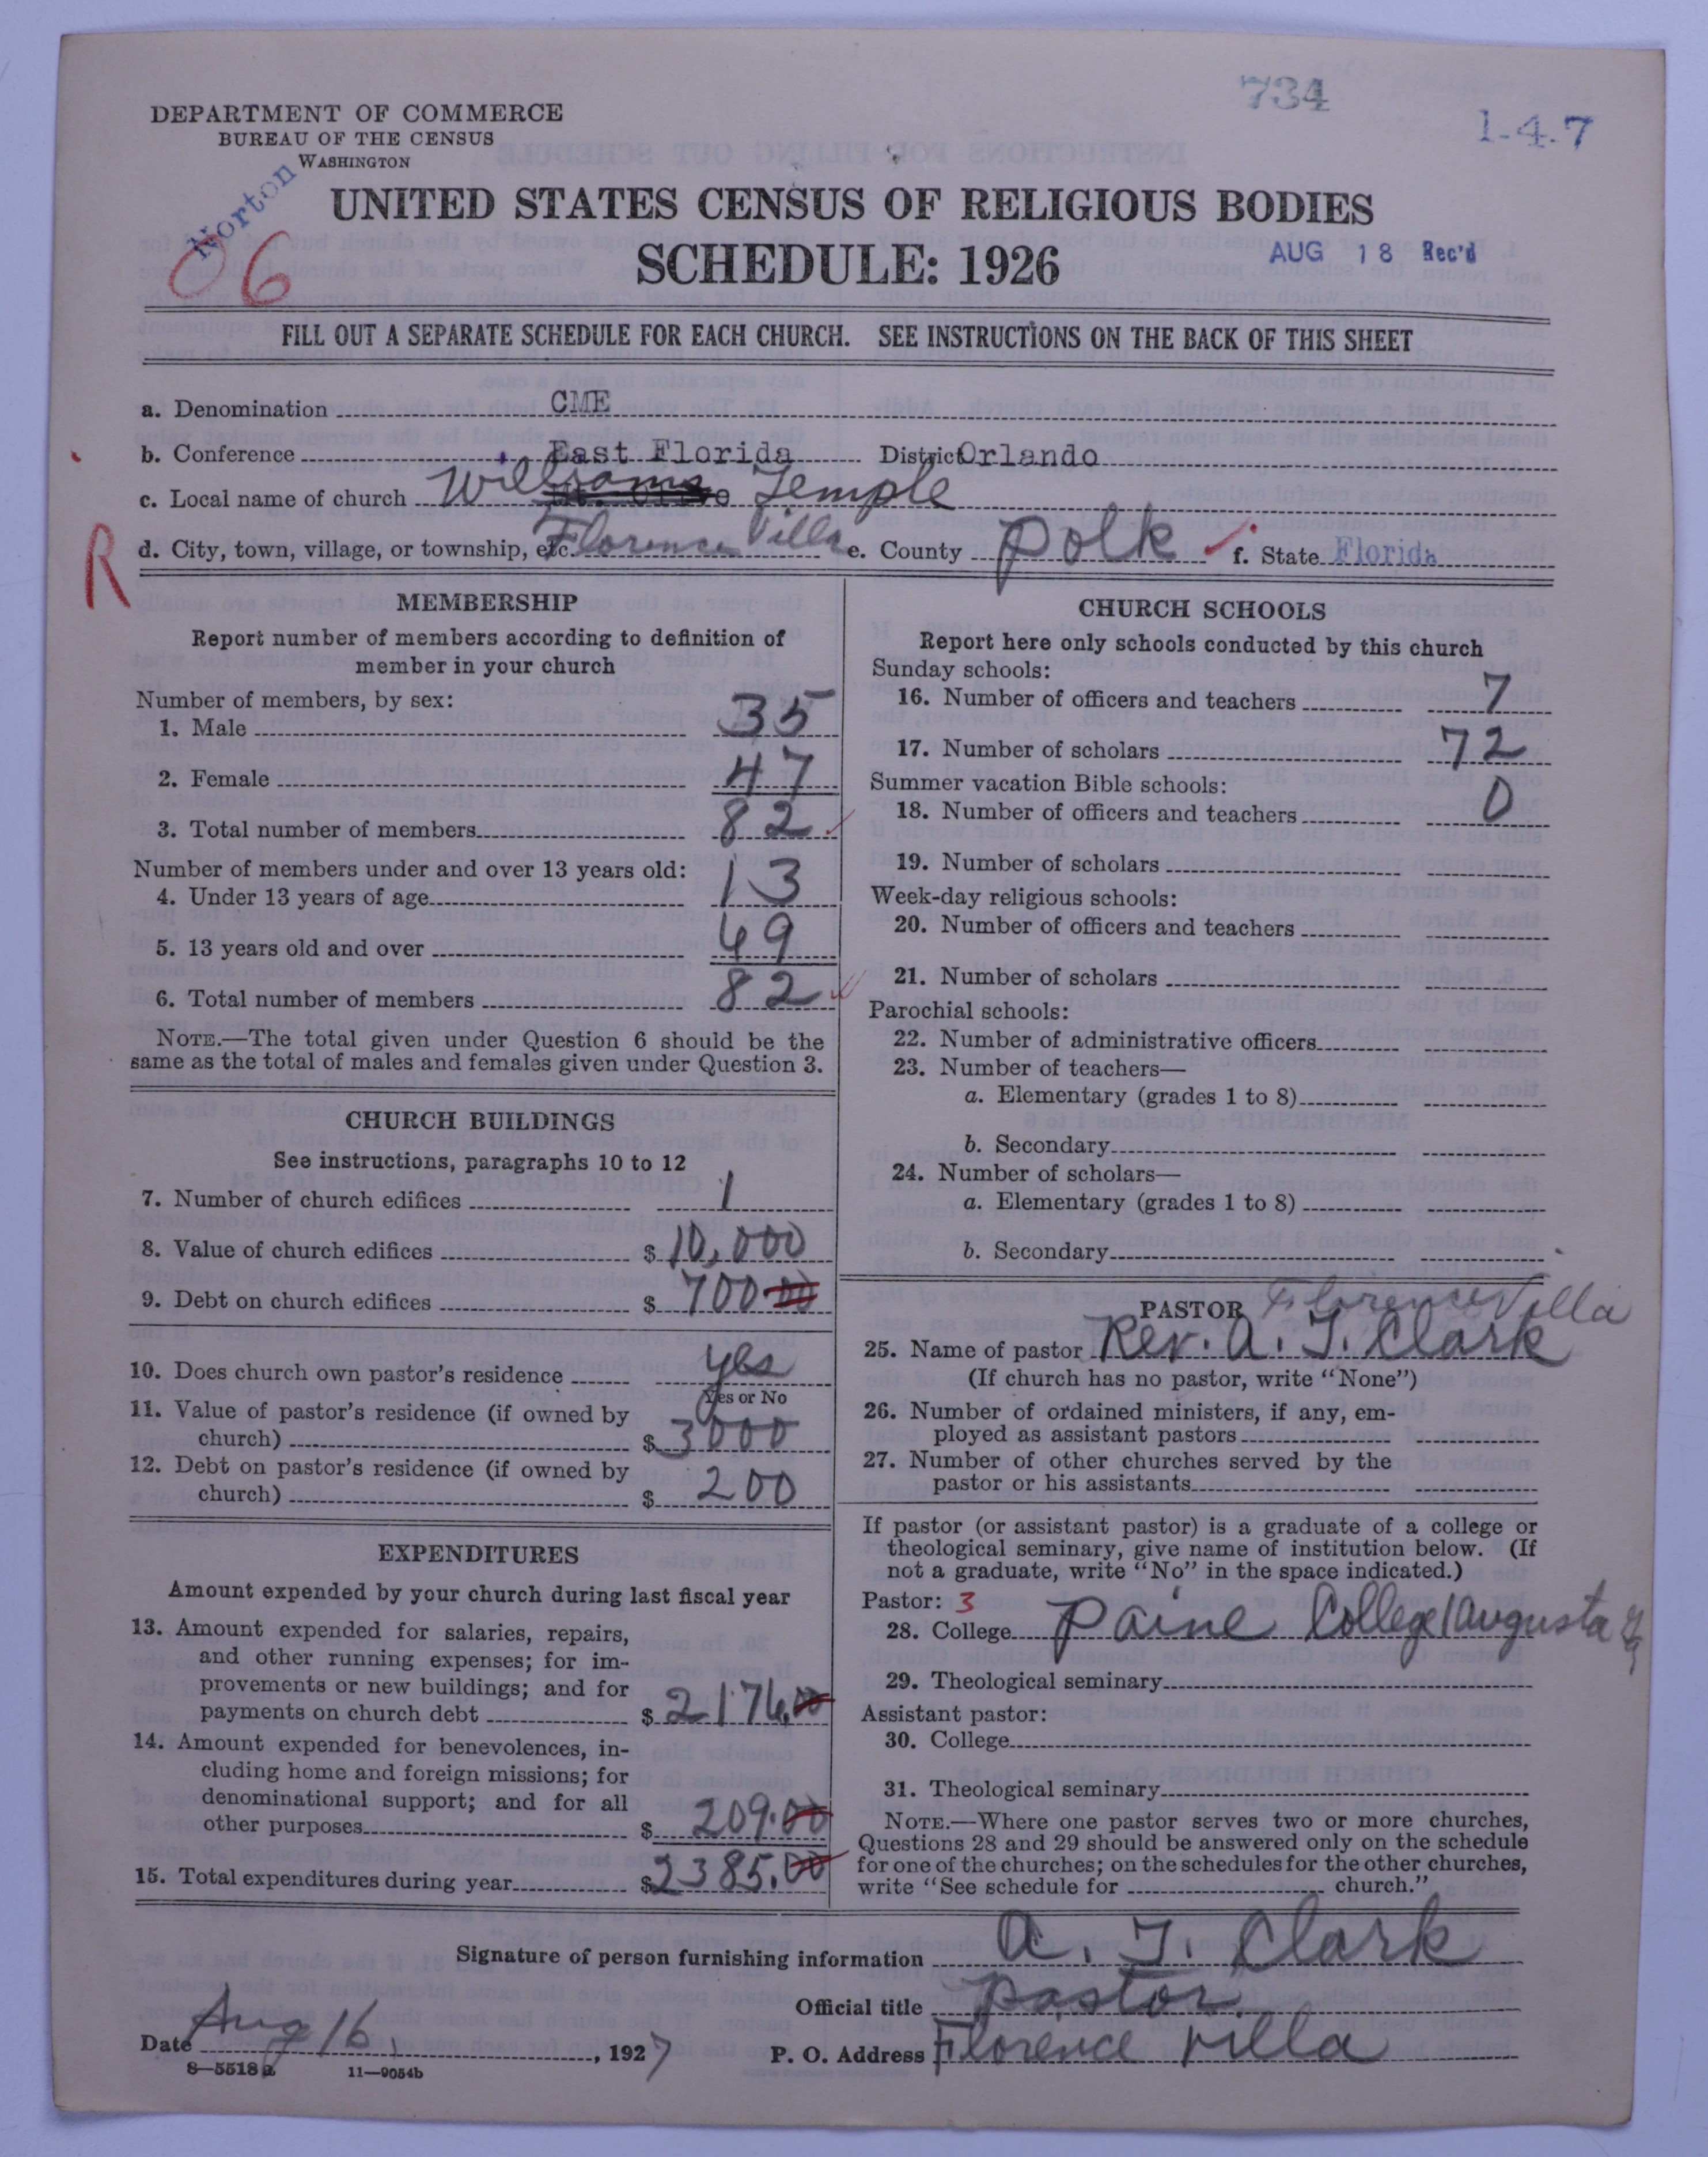 734
1-4-7
DEPARTMENT OF COMMERCE
BUREAU OF THE CENSUS
WASHINGTON
Norton
06
UNITED STATES CENSUS OF RELIGIOUS BODIES
SCHEDULE: 1926
AUG 18 Rec'd
FILL OUT A SEPARATE SCHEDULE FOR EACH CHURCH. SEE INSTRUCTIONS ON THE BACK OF THIS SHEET
a. Denomination CME
b. Conference East Florida District Orlando
c. Local name of church Williams Temple
R
d. City, town, village, or township, etc. Florence Villa e. County Polk f. State Florida
MEMBERSHIP
Report number of members according to definition of
member in your church
Number of members, by sex:
1. Male 35
2. Female 47
3. Total number of members 82
Number of members under and over 13 years old:
4. Under 13 years of age 13
5. 13 years old and over 69
6. Total number of members 82
NOTE.—The total given under Question 6 should be the
same as the total of males and females given under Question 3.
CHURCH BUILDINGS
See instructions, paragraphs 10 to 12
7. Number of church edifices 1
8. Value of church edifices $ 10,000
9. Debt on church edifices $ 700.00
10. Does church own pastor's residence yes
Yes or No
11. Value of pastor's residence (if owned by
church) $ 3000
12. Debt on pastor's residence (if owned by
church) $ 200
EXPENDITURES
Amount expended by your church during last fiscal year
13. Amount expended for salaries, repairs,
and other running expenses; for im-
provements or new buildings; and for
payments on church debt $ 2176.00
14. Amount expended for benevolences, in-
cluding home and foreign missions; for
denominational support; and for all
other purposes $ 209.00
15. Total expenditures during year $ 2385.00
CHURCH SCHOOLS
Report here only schools conducted by this church
Sunday schools:
16. Number of officers and teachers 7
17. Number of scholars 72
Summer vacation Bible schools:
18. Number of officers and teachers 0
19. Number of scholars
Week-day religious schools:
20. Number of officers and teachers
21. Number of scholars
Parochial schools:
22. Number of administrative officers
23. Number of teachers—
a. Elementary (grades 1 to 8)
b. Secondary
24. Number of scholars—
a. Elementary (grades 1 to 8)
b. Secondary
PASTOR Florence Villa
25. Name of pastor Rev. A. J. Clark
(If church has no pastor, write "None")
26. Number of ordained ministers, if any, em-
ployed as assistant pastors
27. Number of other churches served by the
pastor or his assistants
If pastor (or assistant pastor) is a graduate of a college or
theological seminary, give name of institution below. (If
not a graduate, write "No" in the space indicated.)
Pastor: 3
28. College Paine College Augusta Ga
29. Theological seminary
Assistant pastor:
30. College
31. Theological seminary
NOTE.—Where one pastor serves two or more churches,
Questions 28 and 29 should be answered only on the schedule
for one of the churches; on the schedules for the other churches,
write "See schedule for church."
Signature of person furnishing information A. J. Clark
Official title Pastor
Date Aug 16, 1927 P. O. Address Florence Villa
8—5518a 11—9054b